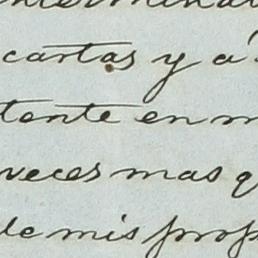 cartas y a
tente en m
veces mas q
de mis prop